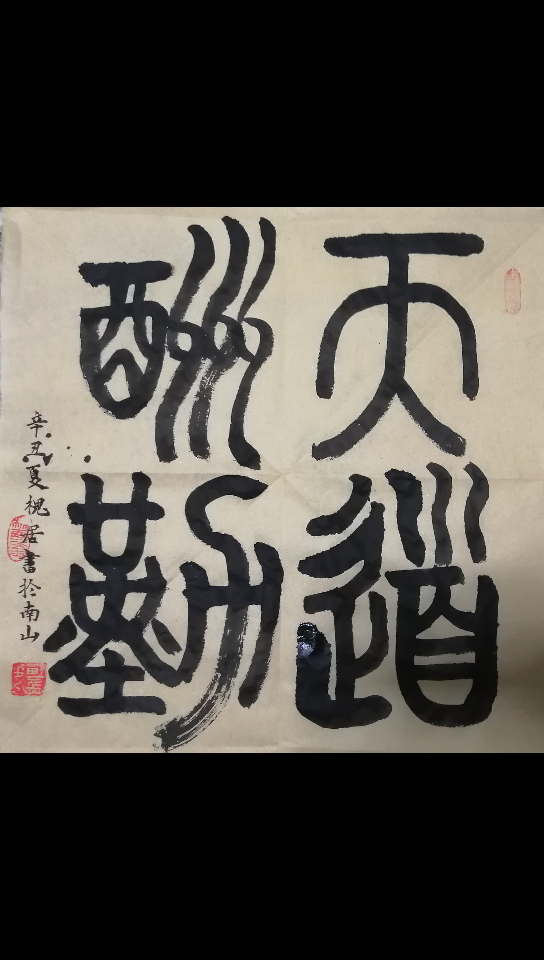 天道
酬勤
辛丑夏槐居書於南山